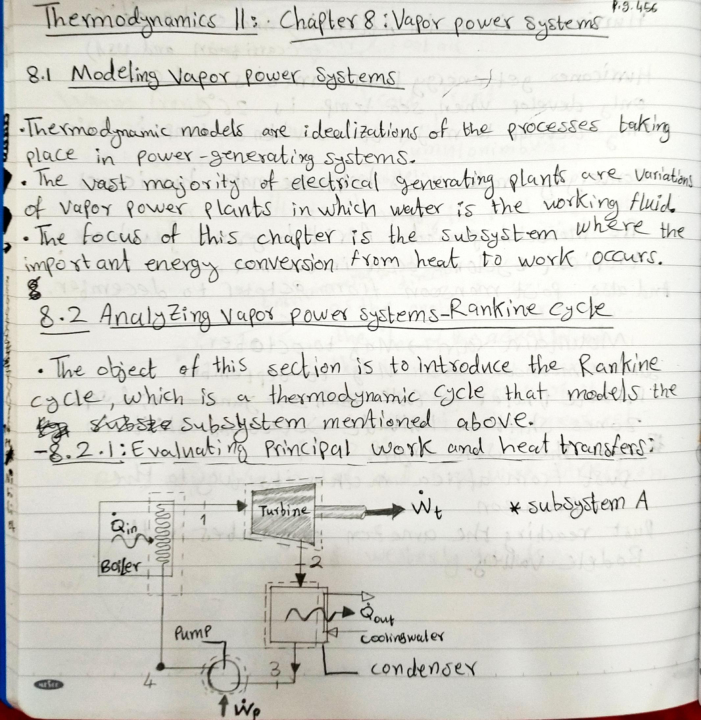 P.g. 456
Thermodynamics II: Chapter 8: Vapor power systems
8.1 Modeling Vapor power systems
• Thermodynamic models are idealizations of the processes taking
place in power-generating systems.
• The vast majority of electrical generating plants are variations
of vapor power plants in which water is the working fluid.
• The focus of this chapter is the subsystem where the
important energy conversion from heat to work occurs.
8.2 Analyzing vapor power systems-Rankine cycle
• The object of this section is to introduce the Rankine
cycle, which is a thermodynamic cycle that models the
subsystem mentioned above.
-8.2.1: Evaluating Principal work and heat transfers:
Turbine
Ẇt
* subsystem A
1
Q̇in
Boiler
2
Q̇out
Cooling water
Pump
condenser
3
4
Ẇp